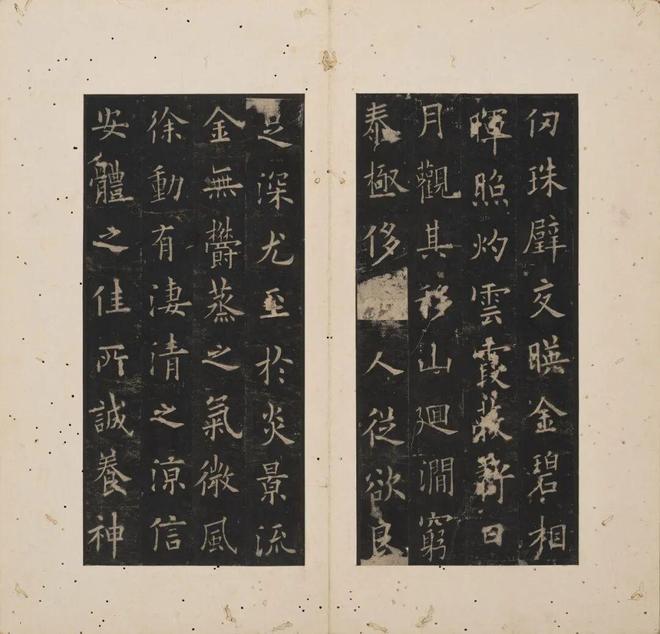 仞珠璧交暎金碧相
暉照灼雲霞蔽日
月觀其移山廻澗窮
泰極侈人從欲良
足深尤至於炎景流
金無鬱蒸之氣微風
徐動有淒清之涼信
安體之佳所誠養神